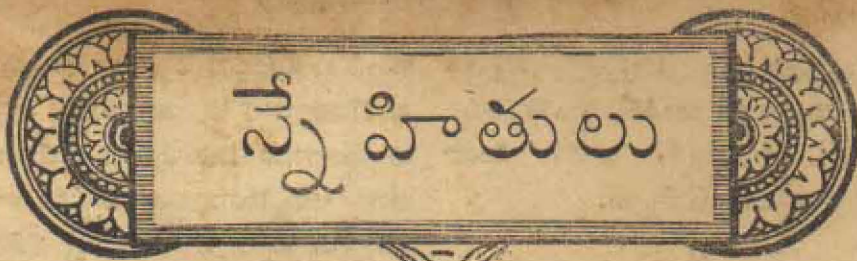 స్నేహితులు